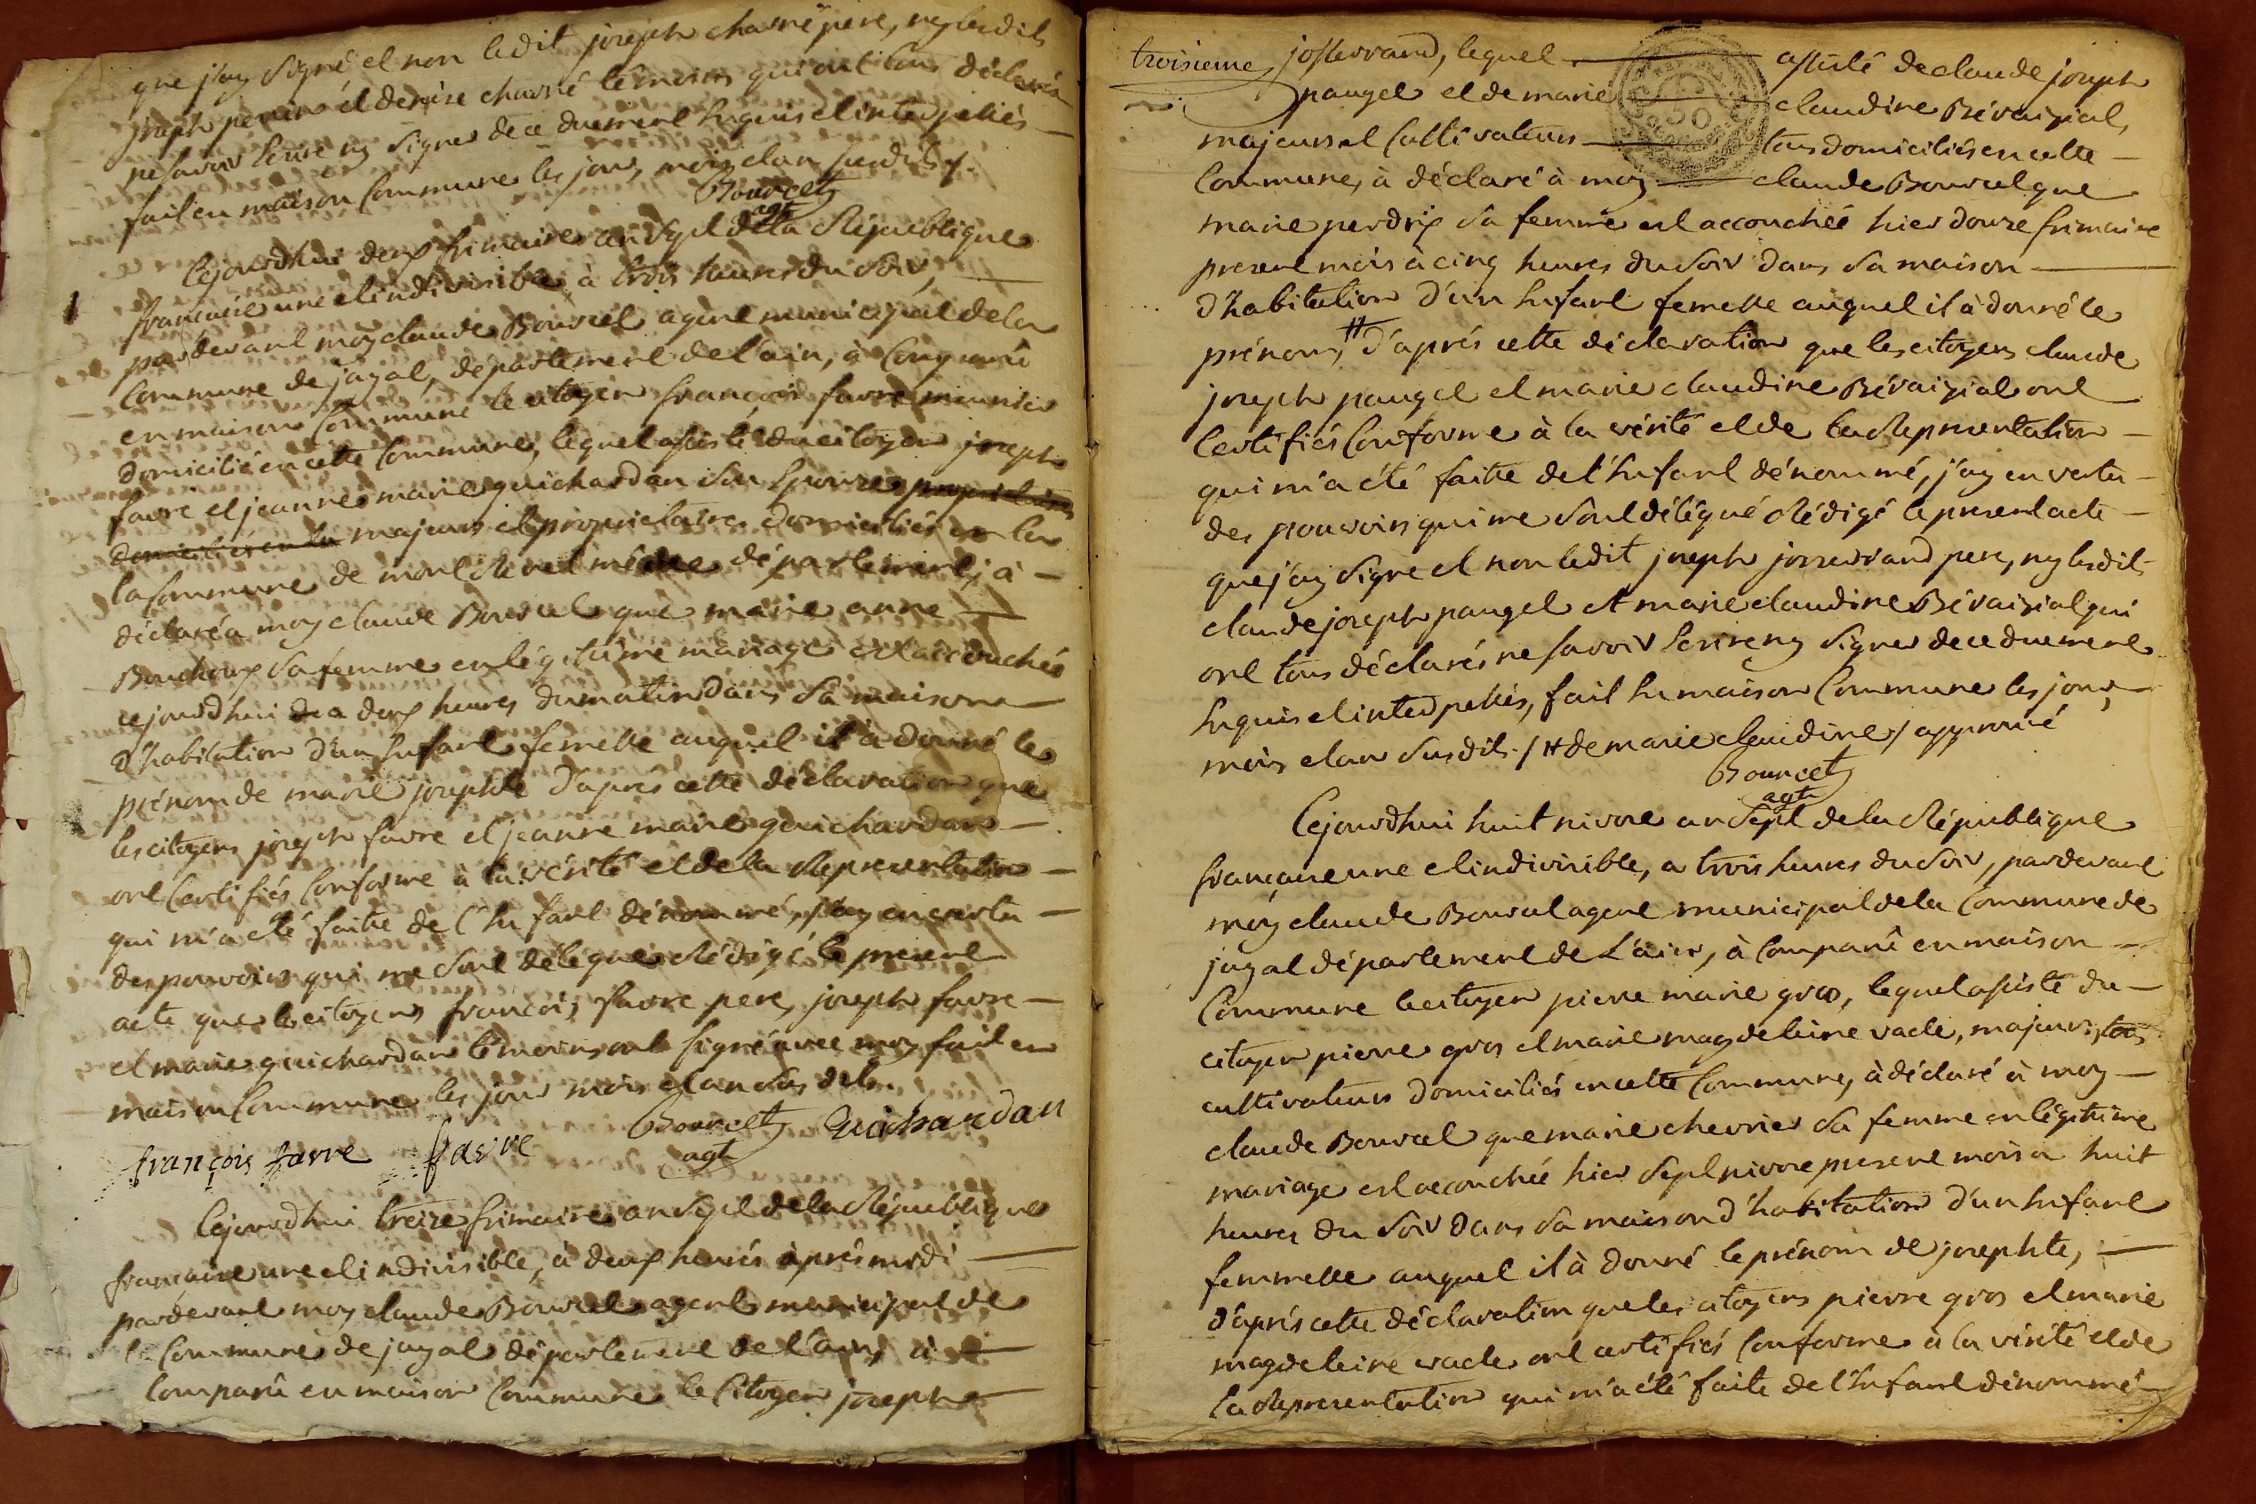 que j'ay signé et non ledit joseph charvé pere, ny lesdits
joseph perrin et denise charvé témoins qui ont tous déclarés
ne savoir Ecrire ny signer de ce duement Enquis et interpellés
fait en maison Commune les jour, mois et an susdits /.
Bourcet
agt
Cejourdhui deux frimaire an Sept de la République
francaise une et indivisible, à trois heures du soir,
pardevant moy claude Bourcet agent municipal de la
Commune de jayat, département de l'ain, à Comparû
en maison Commune le citoyen françois favre meunier
domicilié en cette Commune, lequel assisté du citoyen joseph
favre et jeanne marie guichardan son Epouze propriétaires
domiciliés en la majeurs et propriétaires domiciliés en la
la Commune de mont Revel même département, à
déclaré a moy claude Bourcet que marie anne
Bouchoux sa femme en légitime mariage est accouchée
cejourdhui de a deux heures du matin dans sa maison
d'habitation d'un Enfant femelle auquel il à donné le
prénom de marie josephte d'aprés cette déclaration que
les citoyens joseph favre et jeanne marie guichardan
ont Certifiés Conforme à la vérité et de la Representation
qui m'a été faitte de l'Enfant dénommé, j'ay en vertu
des pouvoirs qui me sont délégués Rédigé le present
acte que les citoyens françois favre pere, joseph favre
et marie guichardan témoins ont signé avec moy fait en
maison Commune les jour mois et an sus dits.
Bourcet Guichardan
françois favre favre agt
Cejourdhui treize frimaire an Sept de la République
francaise une et indivisible, à deux heures aprés midi
pardevant moy claude Bourcet agent municipal de
la Commune de jayat département de l'ain, à
Comparû en maison Commune le Citoyen joseph
troisieme josserrand, lequel assisté de claude joseph
paugel et de marie claudine Bévaizial,
majeurs et Cultivateurs tous domiciliés en cette
Commune, à déclaré à moy claude Bourcet que
marie perdrix sa femme est accouchée hier douze frimaire
present mois à cinq heures du soir dans sa maison
d'habitation d'un Enfant femelle auquel il à donné le
prénom, # d'aprés cette déclaration que les citoyens claude
joseph paugel et marie claudine Bévaizial ont
Certifiés Conforme à la vérité et de la Representation
qui m'a été faitte de l'Enfant dénommé, j'ay en vertu
des pouvoirs qui me sont délégué Rédigé le present acte
que j'ay signe et non ledit joseph josserrand pere, ny lesdits
claude joseph paugel et marie claudine Bévaizial qui
ont tous déclarés ne savoir Ecrire ny signer de ce duement
Enquis et interpellés, fait En maison Commune les jour,
mois et an susdits / # de marie claudine / approuvé
Bourcet
agt
Cejourdhui huit nivose an Sept de la République
francaise une et indivisible, a trois heures du soir, pardevant
moy claude Bourcet agent municipal de la Commune de
jayat département de L'ain, à Comparû en maison
Commune le citoyen pierre marie gros, lequel assisté du
citoyen pierre gros et marie magdeleine vacle, majeurs, tous
cultivateurs domiciliés en cette Commune, à déclaré à moy
claude Bourcet que marie chevrier sa femme en légitime
mariage est accouchée hier Sept nivose present mois à huit
heures du soir dans sa maison d'habitation d'un Enfant
femmelle auquel il à donné le prénom de josephte,
d'aprés cette déclaration que les citoyens pierre gros et marie
magdeleine vacle ont certifiés Conforme à la vérité et de
la Representation qui m'a été faite de l'Enfant dénommé